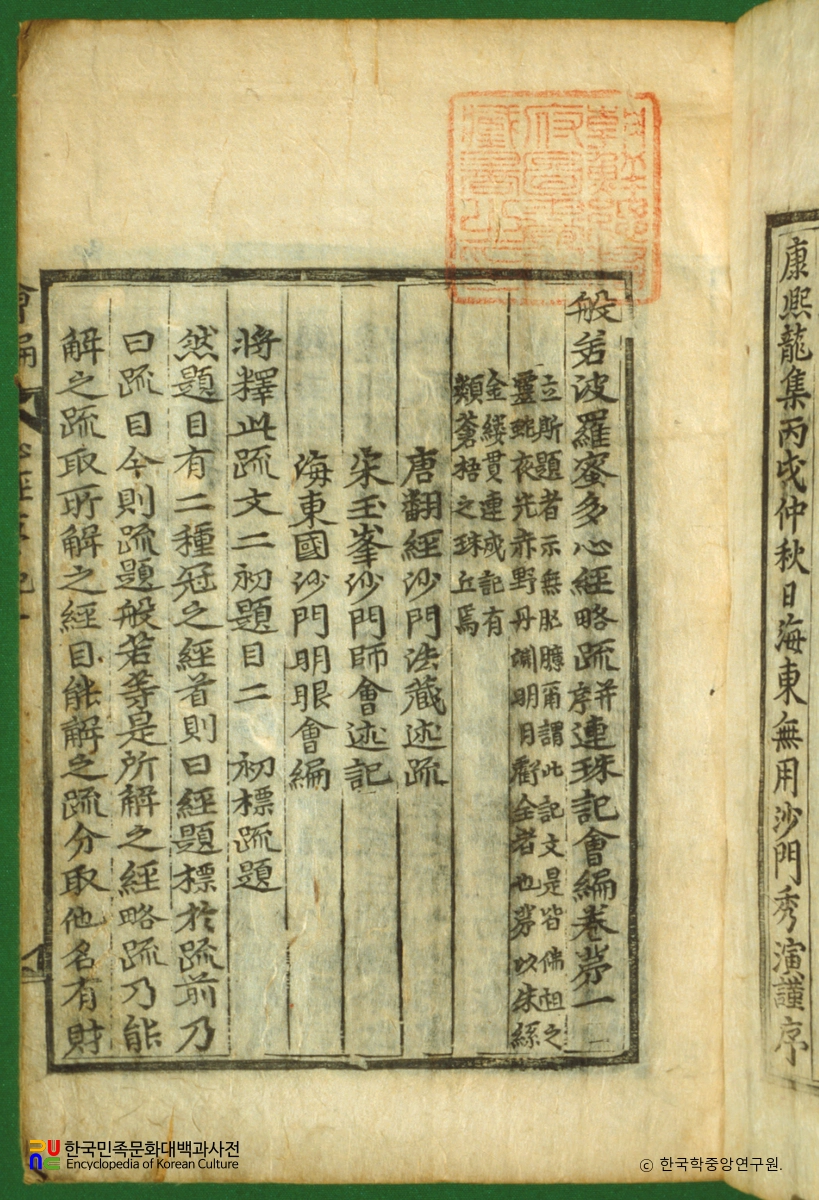 康熙龍集丙戌仲秋日海東無用沙門秀演謹序
般若波羅蜜多心經略疏并序連珠記會編卷第一
立斯題者示無肊臆爾謂此記文是皆佛祖之
靈虵夜光赤野丹淵明月
全者也第以朱絲
金縷貫連成記有
類蒼梧之珠丘焉
唐翻經沙門法藏述疏
宋玉峯沙門師會述記
海東國沙門明眼會編
將釋此疏文二初題目二 初標疏題
然題目有二種冠之經首則曰經題標於疏前乃
曰疏目今則疏題般若等是所解之經略疏乃能
解之疏取所解之經目能解之疏分取他名有財
한국민족문화대백과사전
Encyclopedia of Korean Culture
ⓒ 한국학중앙연구원.